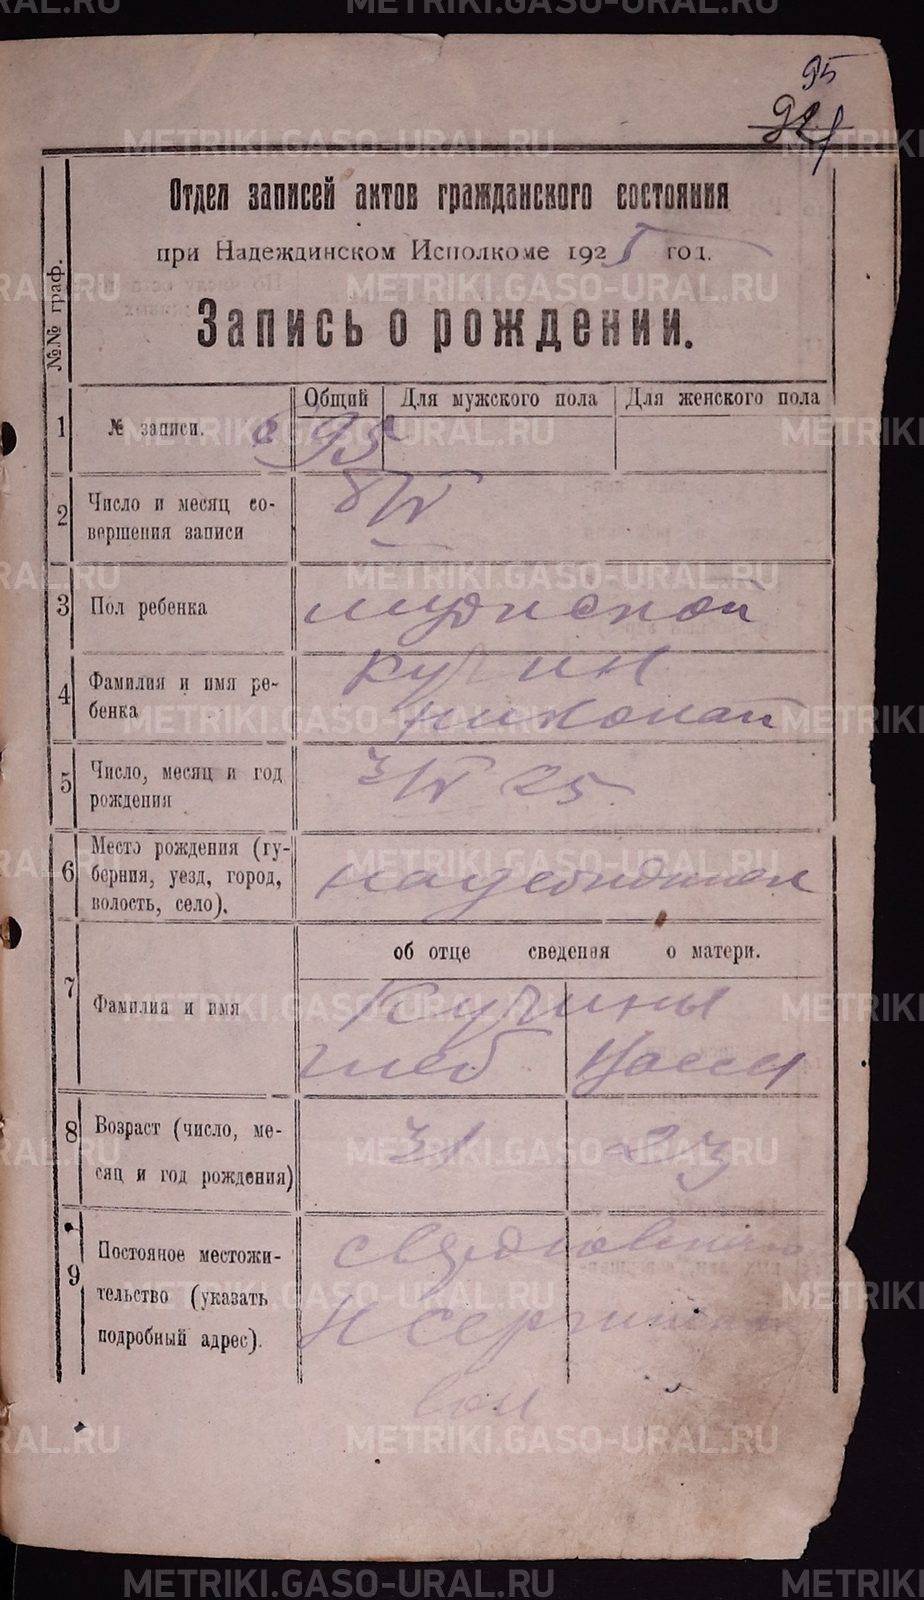 METRIKI.GASO-URAL.RU
95
Отдел записей актов гражданского состояния
при Надеждинском Исполкоме 1925 год.
Запись о рождении.
№№ граф.
Общий Для мужского пола Для женского пола
1 № записи. 95
2 Число и месяц со-
вершения записи
8/IV
3 Пол ребенка мужской
4 Фамилия и имя ре-
бенка
Кучин
Николай
5 Число, месяц и год
рождения
3/IV 25
6 Место рождения (гу-
берния, уезд, город,
волость, село).
об отце сведения о матери.
7 Фамилия и имя
Кучины
Глеб
8 Возраст (число, ме-
сяц и год рождения)
31 23
9 Постояное местожи-
тельство (указать
подробный адрес).
Свердловского
Н Сергинской
вол